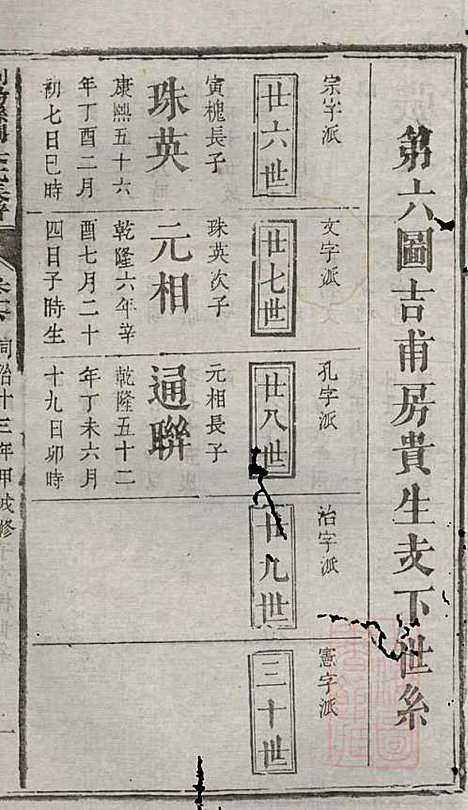 第六圖吉甫房貴生支下世系
宗字派
文字派
孔字派
治字派
憲字派
廿六世
廿七世
廿八世
廿九世
三十世
寅槐長子
珠英
康熙五十六
年丁酉二月
初七日巳時
珠英次子
元相
乾隆六年辛
酉七月二十
四日子時生
元相長子
通聯
乾隆五十二
年丁未六月
十九日卯時
同治十三年甲戌修